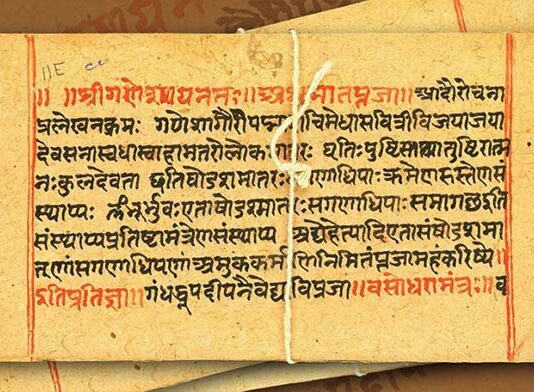 ॥ ॥श्रीगणेशायनमः॥अथमातृपूजा॥आदौरोचना
प्रलेखनक्रमः गणेशगौरीपद्माशचीमेधासवित्रीविजयाजया
देवसेनास्वधास्वाहामातरोलोकमातरः धृतिःपुष्टिस्तथातुष्टिरात्म
नःकुलदेवता इतिषोडशमातरः गणाधिपाःक्रमेण
स्थाप्यः भूर्भुवःएताषोडशमातरःसगणाधिपाःसमागछइति
संस्थाप्यप्रतिष्टामंत्रेणसंस्थाप्य अद्येहेत्यादिएतासंषोडशमा
तृणांसगणाधिपणां अमुककर्मणिनिमितंपूजामहंकरिष्ये॥
इतिप्रतिज्ञा॥गंधधूपदीपनैवेद्य पूजा॥वसोधरामंत्रः॥व